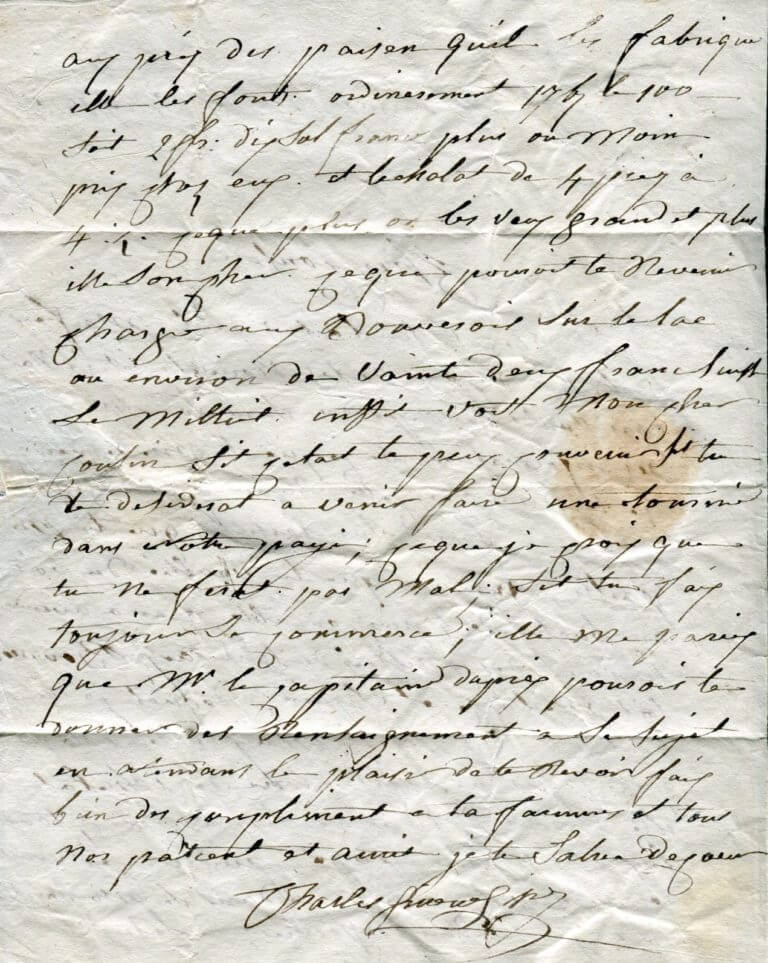 aux préy des paisen quil les fabrique
ille les font ordineserment 17 le 100
soit 2 fr. dix sol france plus ou moin
prix eux. et lechalat de 4 piez à
4 jeque plus on les veux grand et plus
ille son cher jeque pouroit te Revenir
charge aux sur le lac
au environ de vainte deux franc Suiss
Le Millier. Mon cher
cousin Sit getat te peux convenir sit tu
te desidérat a venir faire une tourné
dans Notre payi; jeque je crois que
tu ne ferat pas Mal. Sit tu faix
toujour Le commerce; ille me parez
que Mr. le capitaine dupréx pouroit te
donner des Rensaignement a Se Sujet
en atendant le plaisir de te Revoir faix
bien des compliment a ta famme et tous
Nos parent et amit je te Salue De coeur
Charles